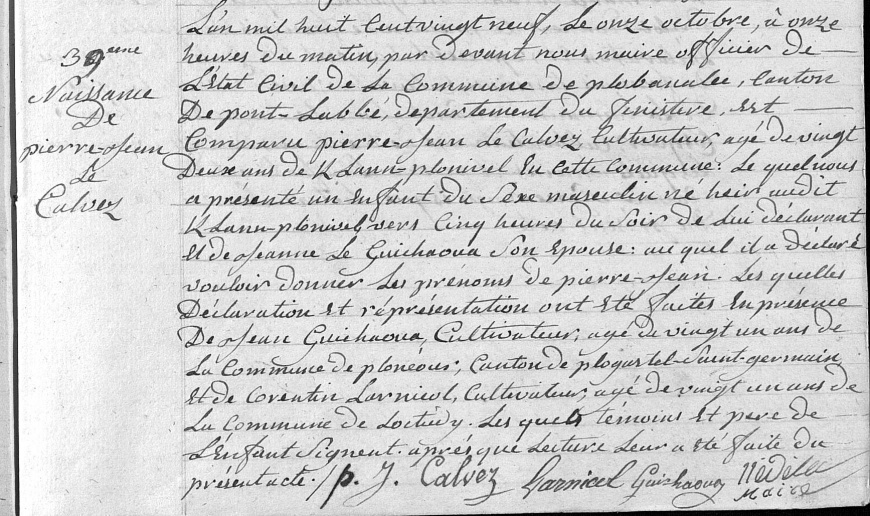 39eme
Naissance
De
pierre-Jean
Le
Calvez
L'an mil huit Cent vingt neuf, Le onze octobre, à onze
heures du matin, par devant nous maire officier de
L'Etat Civil de La Commune de plobanalec, Canton
De pont-Labbé, departement du finistere, Est
Comparu pierre-Jean Le Calvez, Cultivateur, agé de vingt
Deux ans de KLann-plonivel En Cette Commune: Le quel nous
a présenté un Enfant du Sexe masculin né heir audit
KLann-plonivel, vers Cinq heures du Soir de Lui déclarant
Et de Jeanne Le Guichaoua Son Epouse: au quel il a déclaré
vouloir donner Les prénoms de pierre-Jean. Les quelles
Déclaration Et réprésentation ont Eté faites En présence
De Jean Guichaoua, Cultivateur, agé de vingt un ans de
La Commune de plonéour, Canton de plogastel-Saint-germain
Et de Corentin Larnicol, Cultivateur, agé de vingt un ans de
La Commune de Loctudy. Les quels témoins Et pere de
L'Enfant Signent. aprés que Lecture Leur a Eté faite du
présent acte. / p. J. Calvez Larnicol Guichaoua
Maire